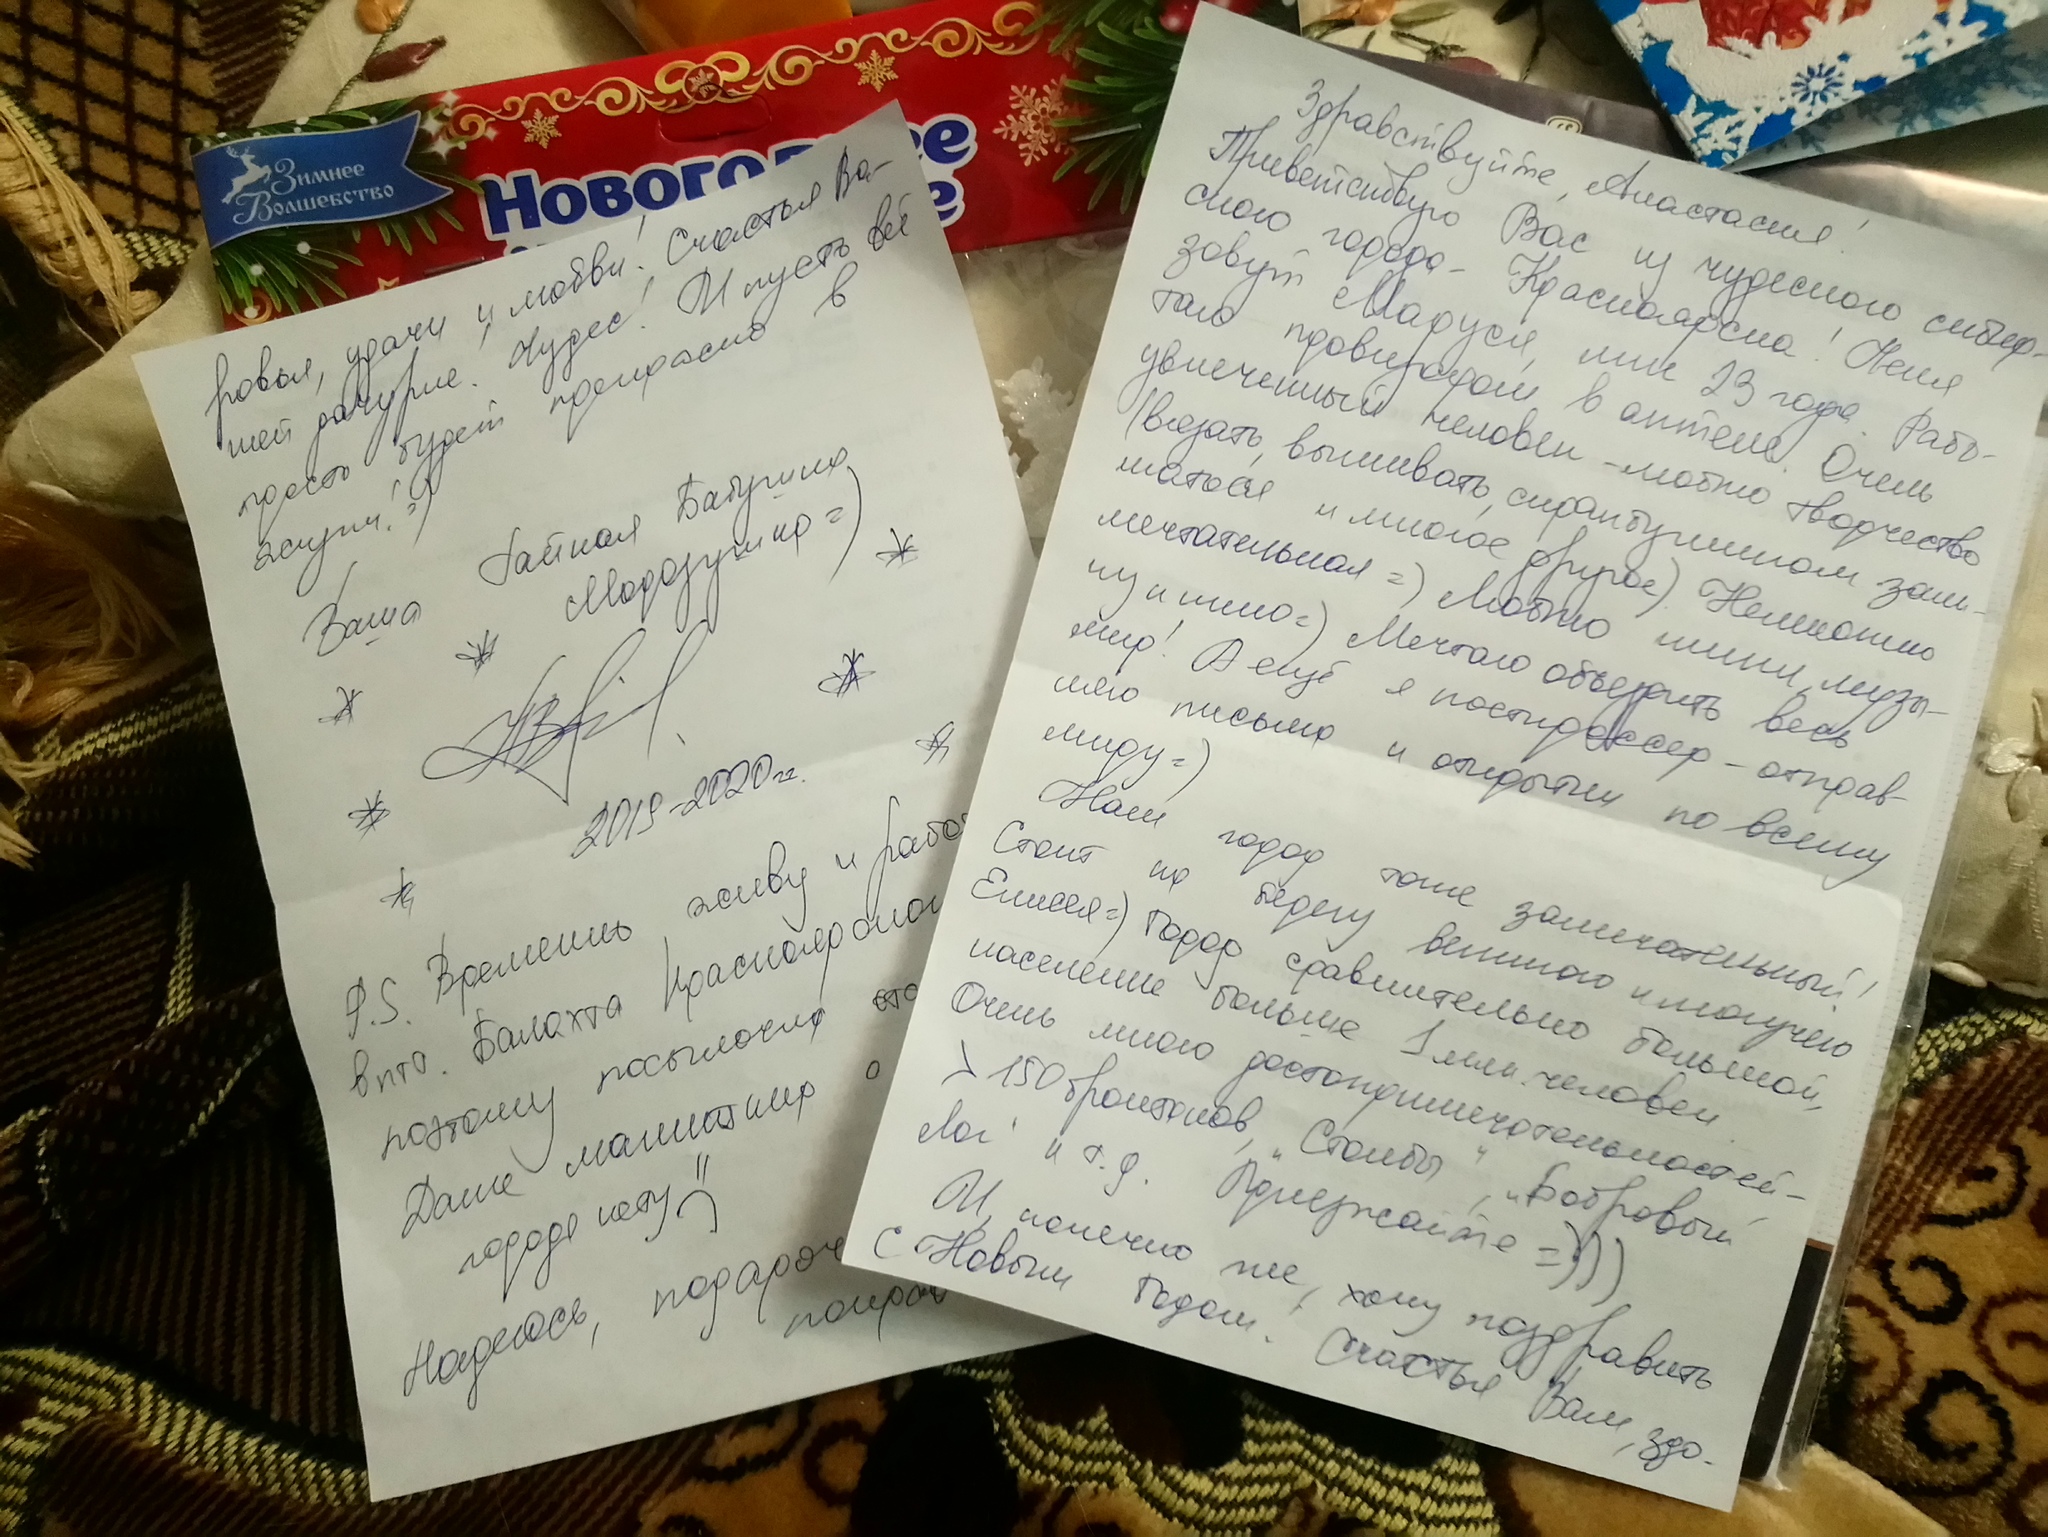 Зимнее
Волшебство
Новогоднее
Здравствуйте, Анастасия!
Приветствую Вас из чудесного сибир-
ского города - Красноярска! Меня
зовут Маруся, мне 23 года. Рабо-
таю провизором в аптеке. Очень
увлеченный человек - люблю творчество
(вязать, вышивать, скрапбукингом зани-
маться и многое другое). Немножко
мечтательная =) Люблю книги, музы-
ку и кино =) Мечтаю объездить весь
мир! А ещё я посткроссер - отправ-
ляю письма и открытки по всему
миру =)
Наш город тоже замечательный!
Стоит на берегу великого и могучего
Енисея =) Город сравнительно большой,
население больше 1 млн. человек.
Очень много достопримечательностей -
> 150 фонтанов, "Столбы", "Бобровый
Лог" и т.д. Приезжайте =)))
И, конечно же, хочу поздравить
с Новым Годом! Счастья Вам, здо-
ровья, удачи и любви! Счастья Ва-
шей дочурке! Чудес! И пусть всё
просто будет прекрасно в
жизни! =)
Ваша Тайная Бабушка
Морозушка =)
2019-2020 гг.
P.S. Временно живу и рабо
в пгт. Балахта Красноярско
поэтому посылочка
Даже магнитика о
городе нету
Надеюсь, подароч
понрав